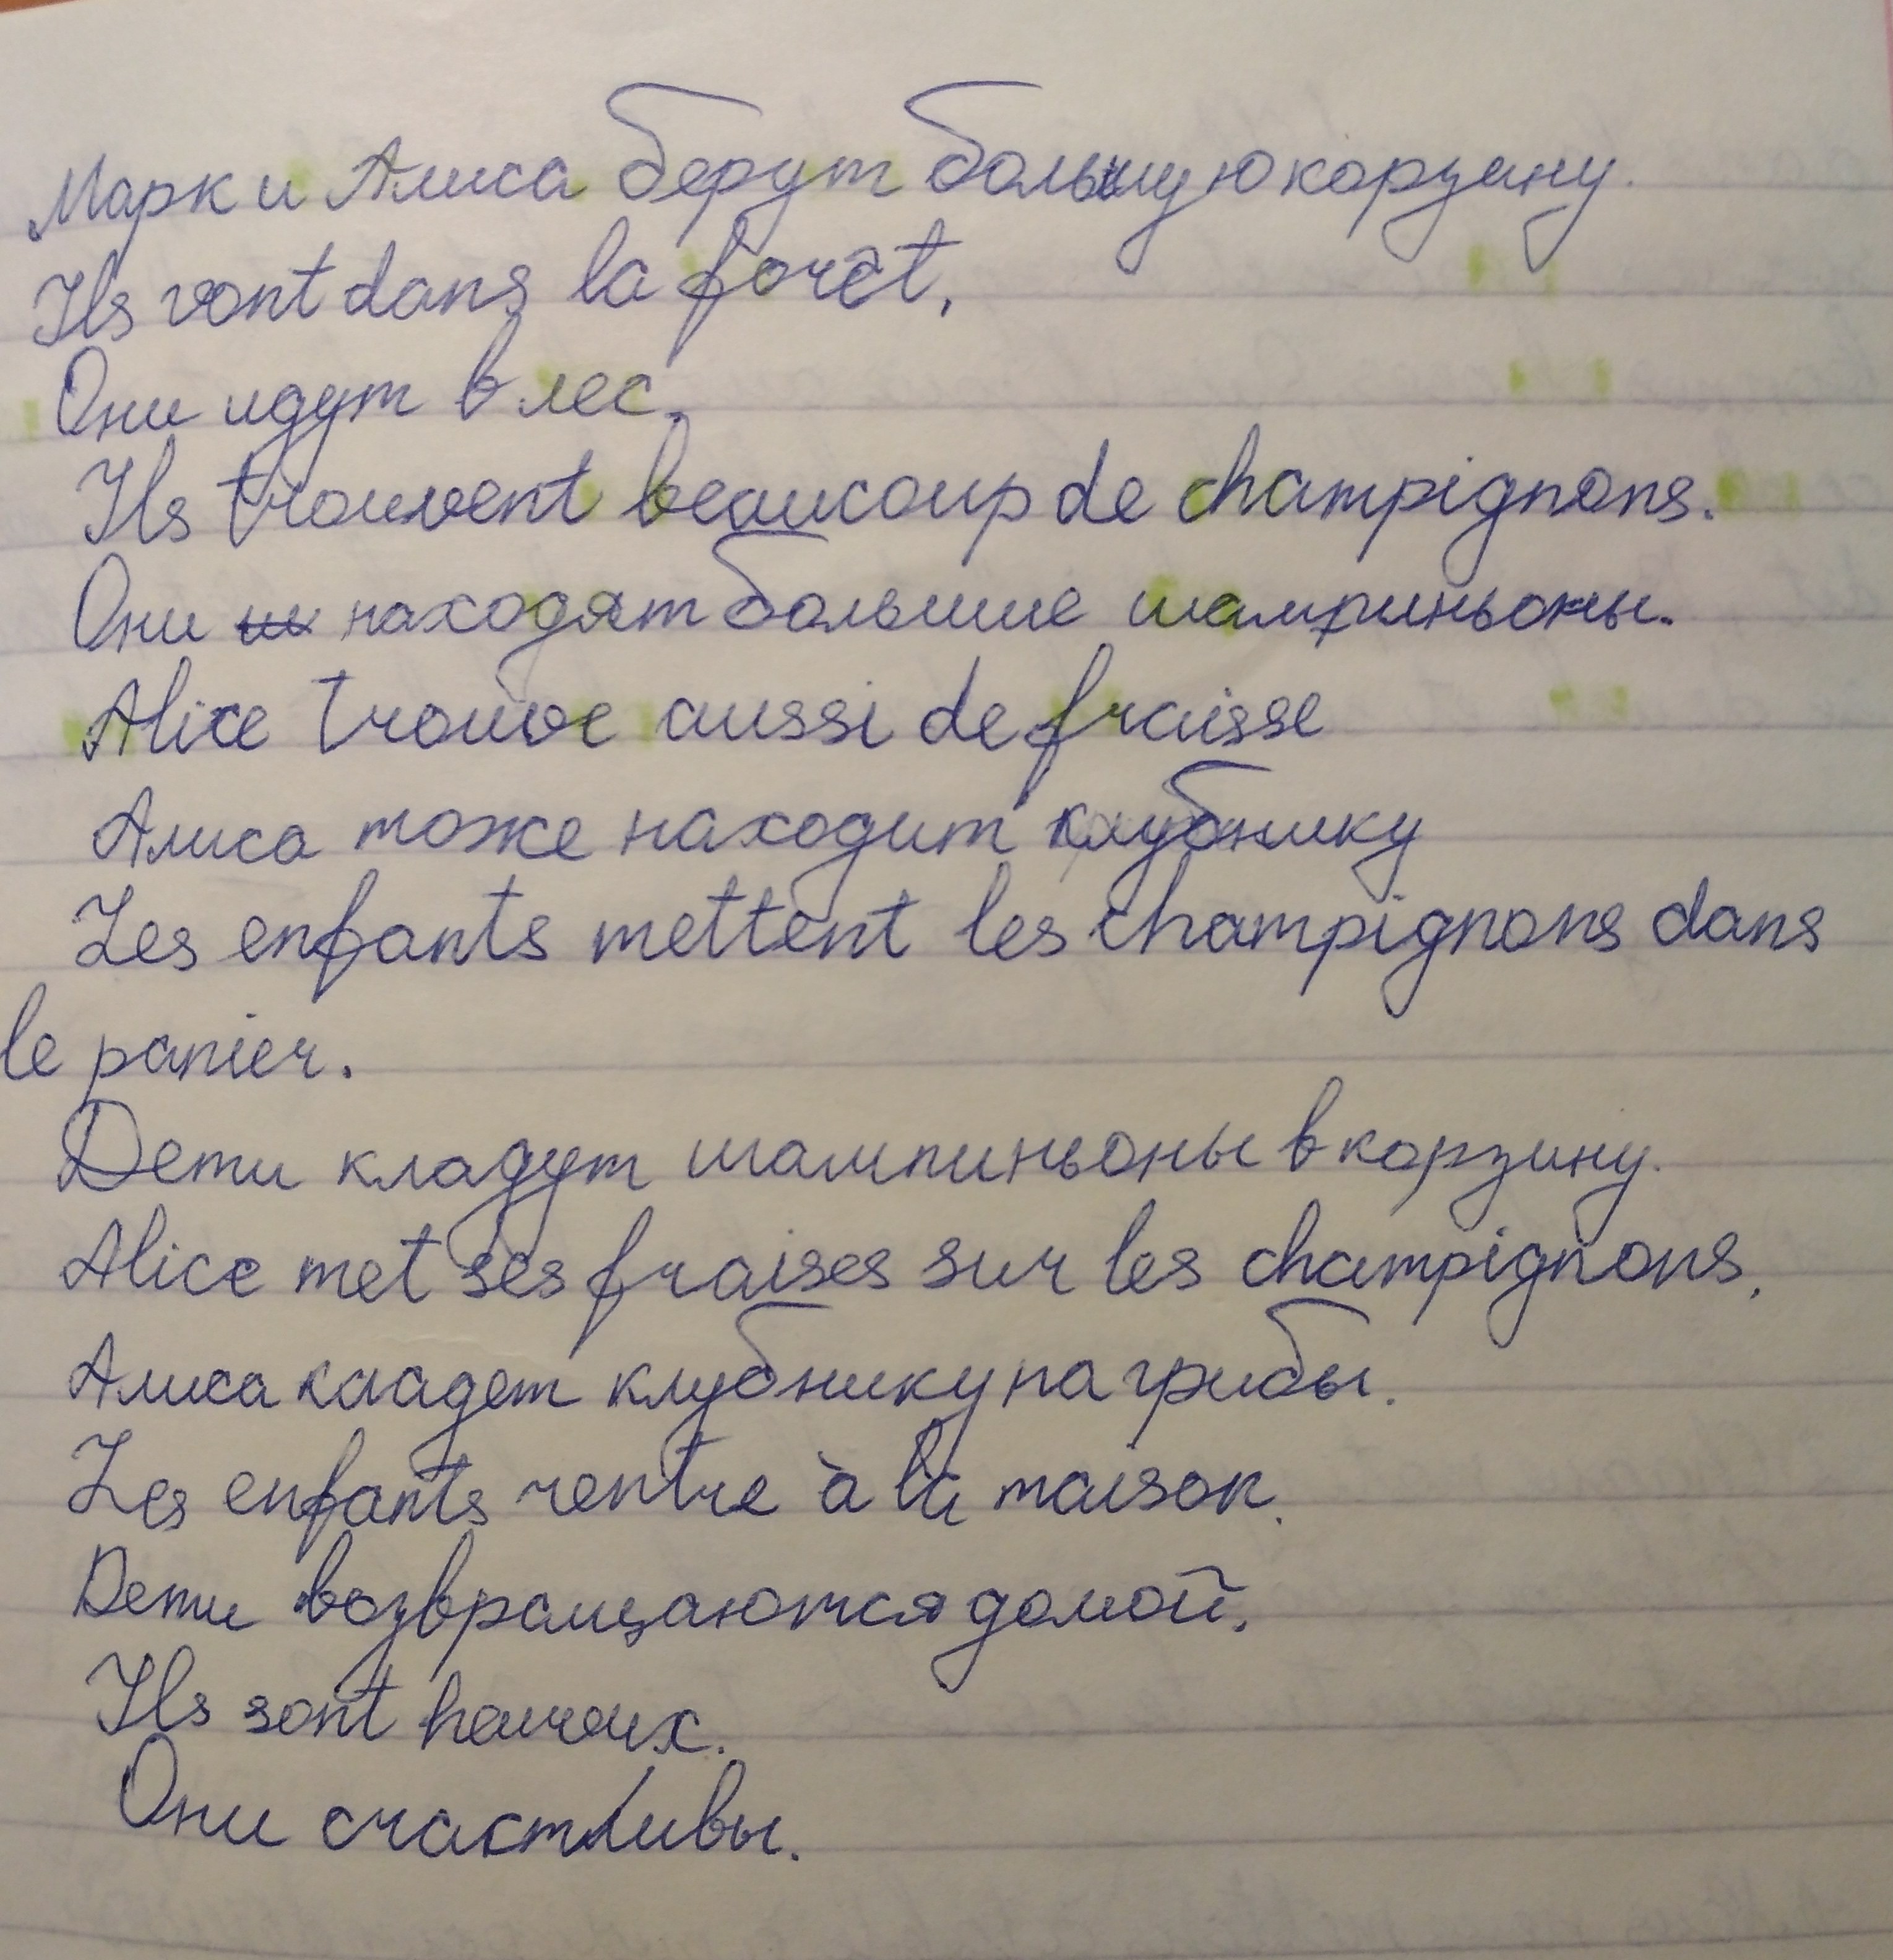 Марк и Алиса берут большую корзину.
Ils vont dans la forêt.
Они идут в лес.
Ils trouvent beaucoup de champignons.
Они находят большие шампиньоны.
Alice trouve aussi de fraisse
Алиса тоже находит клубнику
Les enfants mettent les champignons dans
le panier.
Дети кладут шампиньоны в корзину.
Alice met ses fraises sur les champignons.
Алиса кладет клубнику на грибы.
Les enfants rentre à la maison.
Дети возвращаются домой.
Ils sont heureux.
Они счастливы.